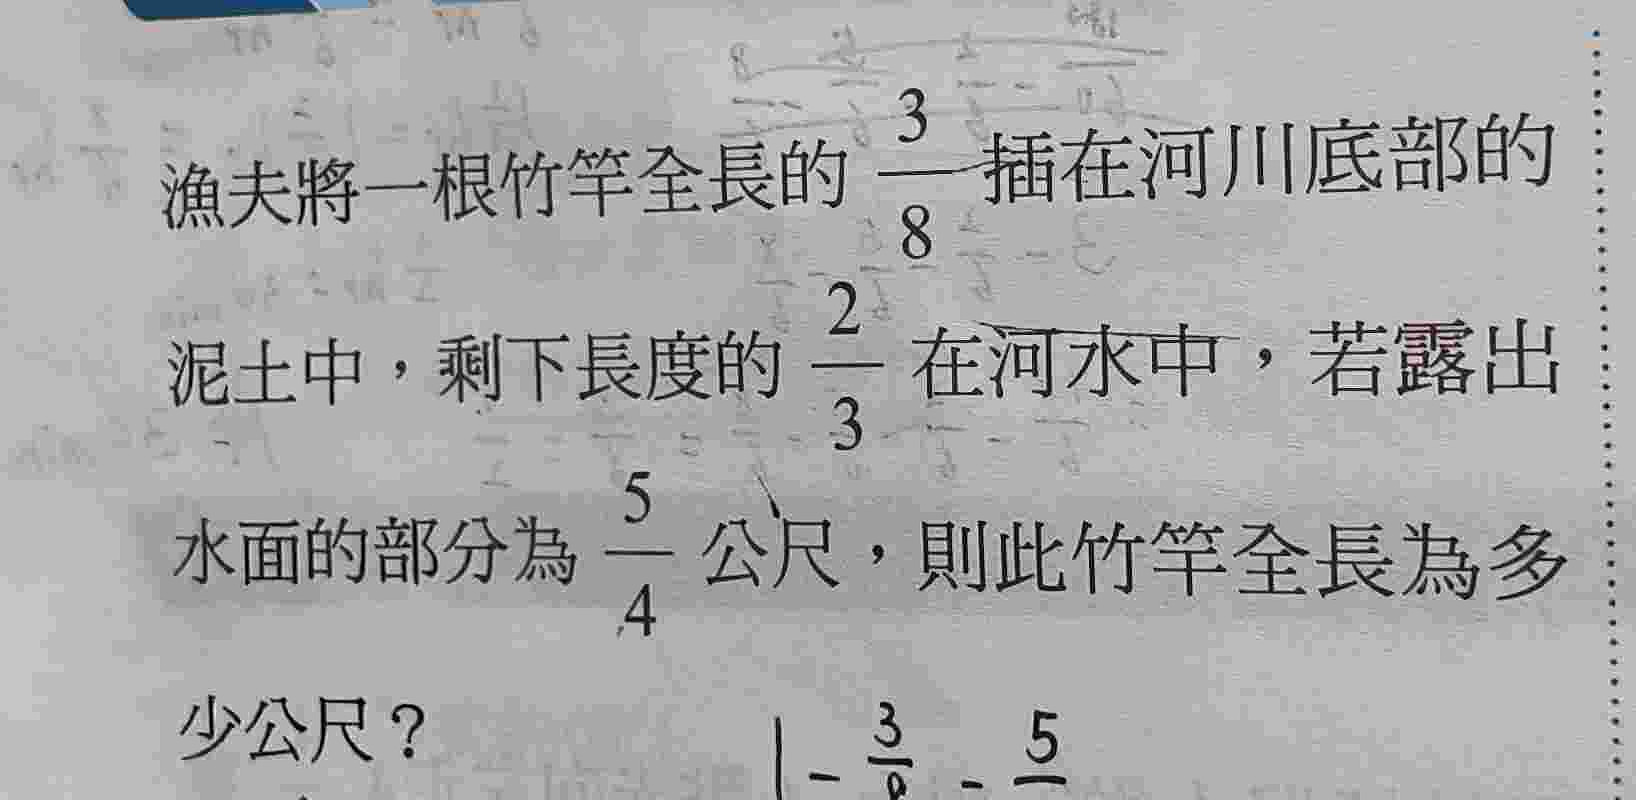 漁夫將一根竹竿全長的 3/8 插在河川底部的
泥土中，剩下長度的 2/3 在河水中，若露出
水面的部分為 5/4 公尺，則此竹竿全長為多
少公尺？
1 - 3/8 - 5